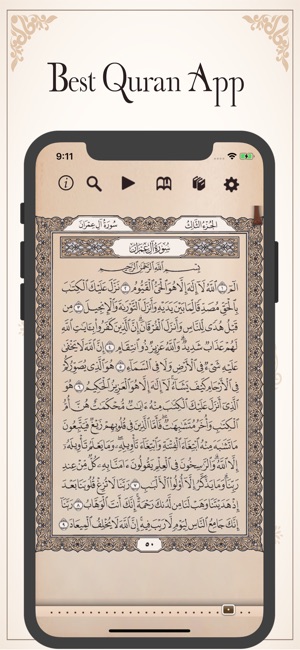 Best Quran App
9:11
سُورَةُ آلِ عِمْرَان
الجُزْءُ الثَّالِث
سُورَةُ آلِ عِمْرَان
بِسْمِ اللَّهِ الرَّحْمَٰنِ الرَّحِيمِ
الٓمٓ ١ ٱللَّهُ لَآ إِلَٰهَ إِلَّا هُوَ ٱلْحَىُّ ٱلْقَيُّومُ ٢ نَزَّلَ عَلَيْكَ ٱلْكِتَٰبَ
بِٱلْحَقِّ مُصَدِّقًا لِّمَا بَيْنَ يَدَيْهِ وَأَنزَلَ ٱلتَّوْرَىٰةَ وَٱلْإِنجِيلَ ٣ مِن
قَبْلُ هُدًى لِّلنَّاسِ وَأَنزَلَ ٱلْفُرْقَانَ إِنَّ ٱلَّذِينَ كَفَرُوا۟ بِـَٔايَٰتِ ٱللَّهِ
لَهُمْ عَذَابٌ شَدِيدٌ وَٱللَّهُ عَزِيزٌ ذُو ٱنتِقَامٍ ٤ إِنَّ ٱللَّهَ لَا يَخْفَىٰ
عَلَيْهِ شَىْءٌ فِى ٱلْأَرْضِ وَلَا فِى ٱلسَّمَآءِ ٥ هُوَ ٱلَّذِى يُصَوِّرُكُمْ
فِى ٱلْأَرْحَامِ كَيْفَ يَشَآءُ لَآ إِلَٰهَ إِلَّا هُوَ ٱلْعَزِيزُ ٱلْحَكِيمُ ٦ هُوَ
ٱلَّذِىٓ أَنزَلَ عَلَيْكَ ٱلْكِتَٰبَ مِنْهُ ءَايَٰتٌ مُّحْكَمَٰتٌ هُنَّ أُمُّ
ٱلْكِتَٰبِ وَأُخَرُ مُتَشَٰبِهَٰتٌ فَأَمَّا ٱلَّذِينَ فِى قُلُوبِهِمْ زَيْغٌ فَيَتَّبِعُونَ
مَا تَشَٰبَهَ مِنْهُ ٱبْتِغَآءَ ٱلْفِتْنَةِ وَٱبْتِغَآءَ تَأْوِيلِهِۦ وَمَا يَعْلَمُ تَأْوِيلَهُۥٓ
إِلَّا ٱللَّهُ وَٱلرَّٰسِخُونَ فِى ٱلْعِلْمِ يَقُولُونَ ءَامَنَّا بِهِۦ كُلٌّ مِّنْ عِندِ
رَبِّنَا وَمَا يَذَّكَّرُ إِلَّآ أُو۟لُوا۟ ٱلْأَلْبَٰبِ ٧ رَبَّنَا لَا تُزِغْ قُلُوبَنَا بَعْدَ
إِذْ هَدَيْتَنَا وَهَبْ لَنَا مِن لَّدُنكَ رَحْمَةً إِنَّكَ أَنتَ ٱلْوَهَّابُ ٨ رَبَّنَآ
إِنَّكَ جَامِعُ ٱلنَّاسِ لِيَوْمٍ لَّا رَيْبَ فِيهِ إِنَّ ٱللَّهَ لَا يُخْلِفُ ٱلْمِيعَادَ ٩
٥٠